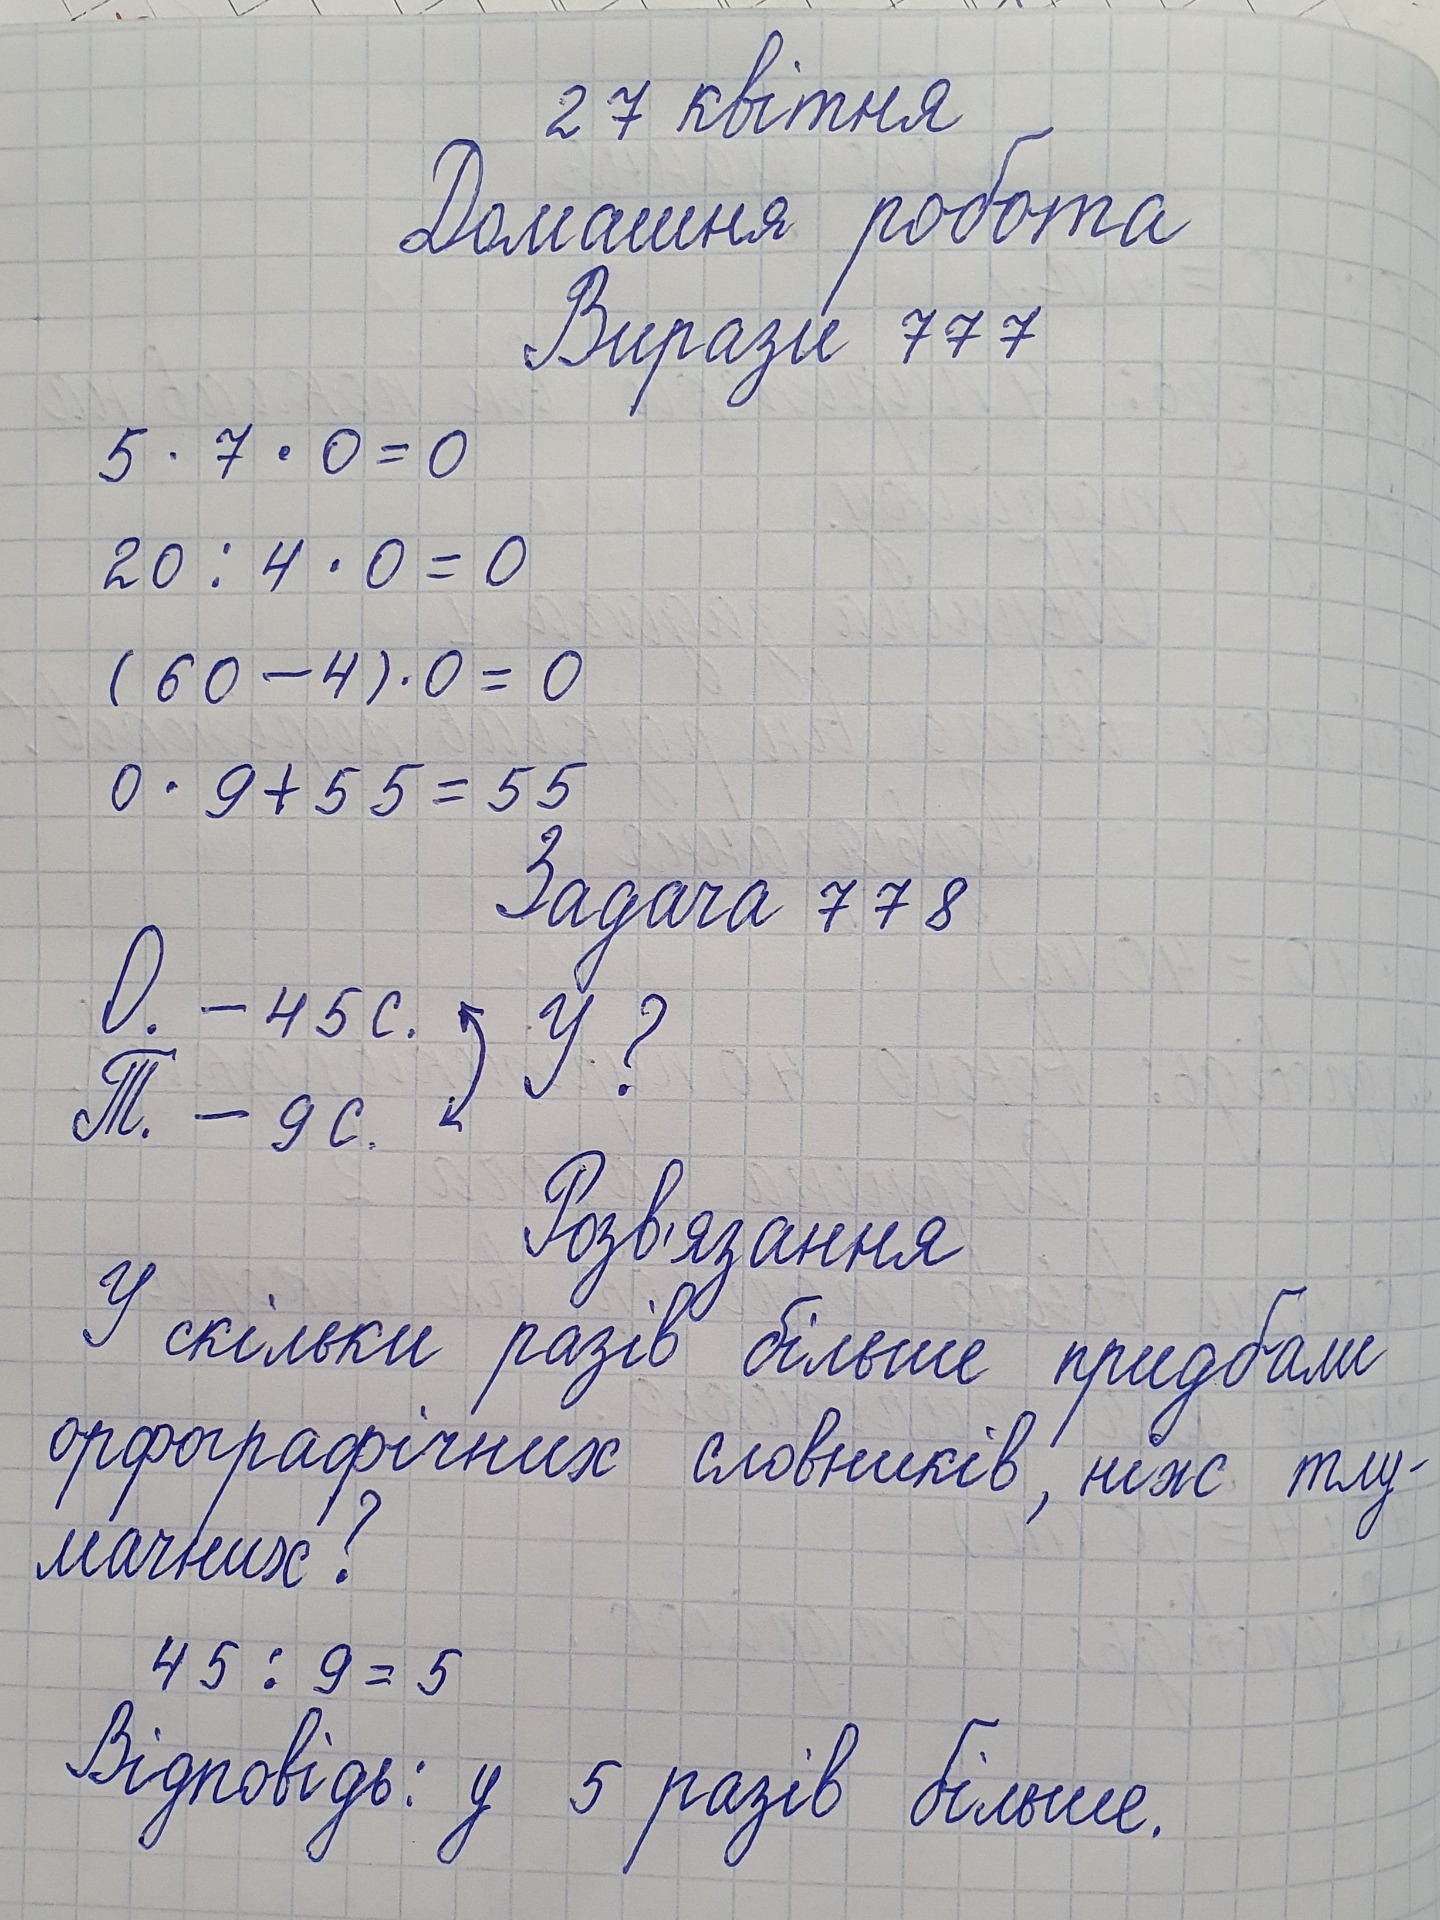 27 квітня
Домашня робота
Вирази 777
5 · 7 · 0 = 0
20 : 4 · 0 = 0
(60 – 4) · 0 = 0
0 · 9 + 55 = 55
Задача 778
О. – 45 с. У ?
Т. – 9 с.
Розв'язання
У скільки разів більше придбали
орфографічних словників, ніж тлу-
мачних?
45 : 9 = 5
Відповідь: у 5 разів більше.